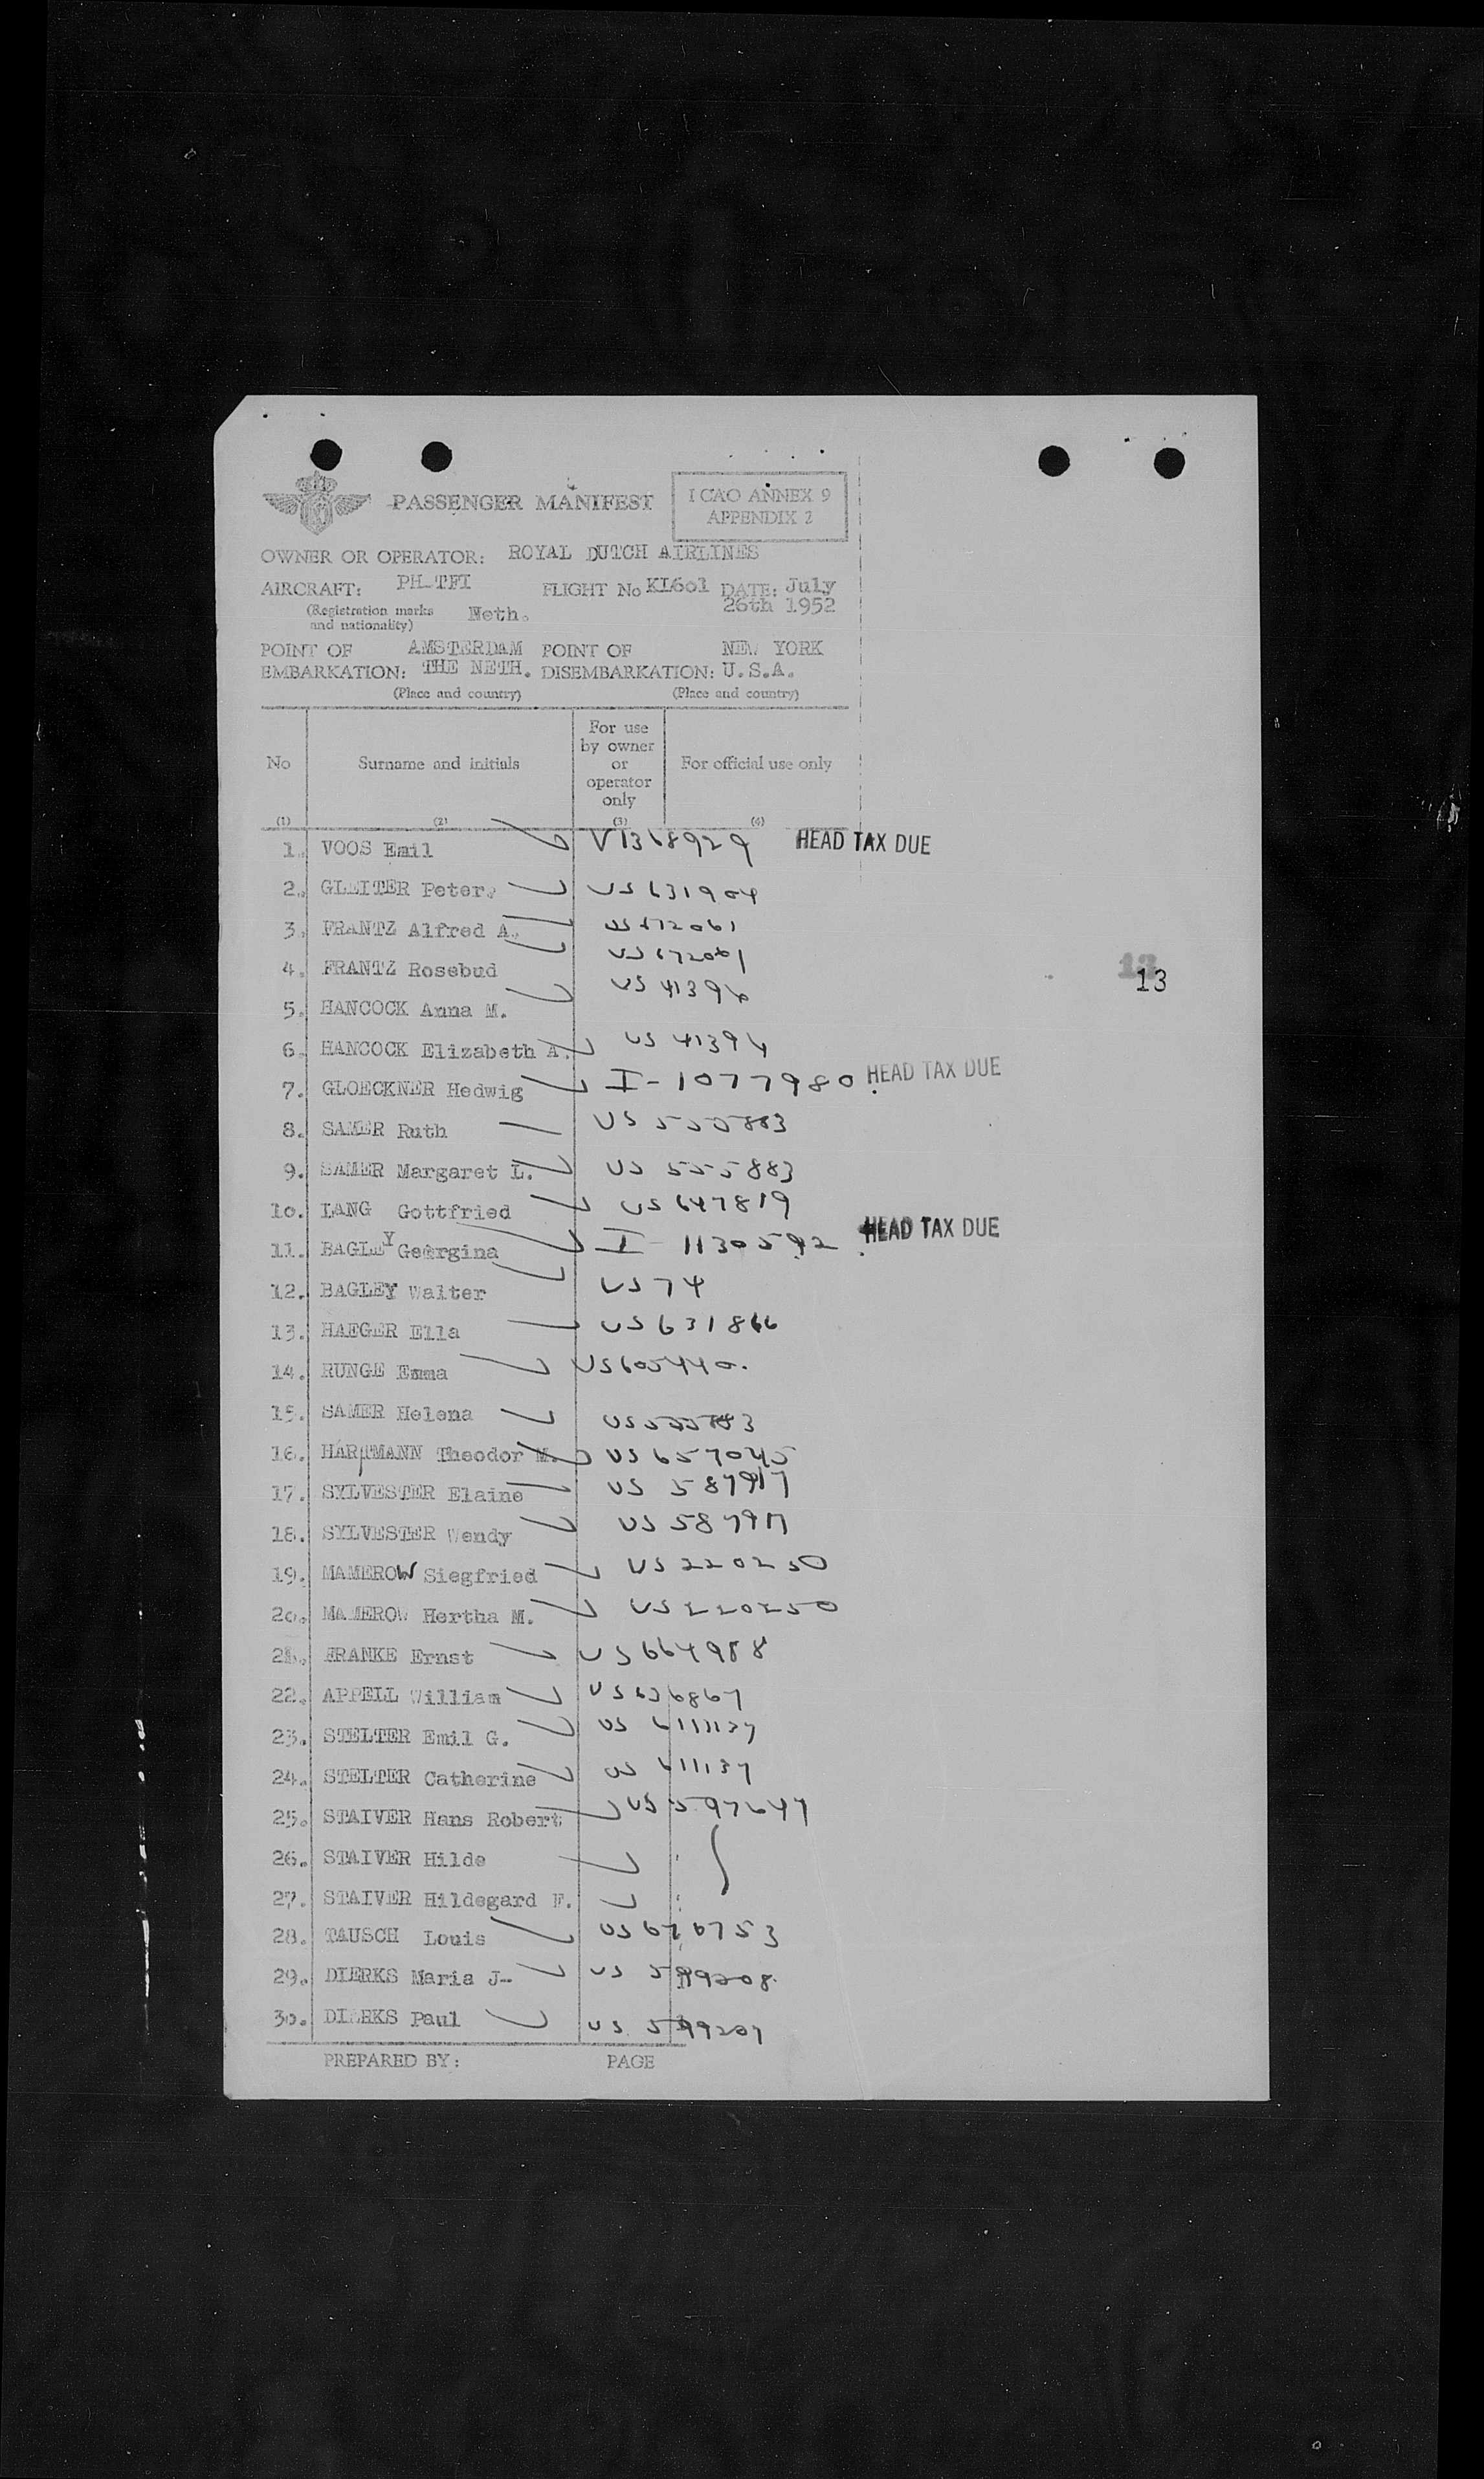 PASSENGER MANIFEST
ICAO ANNEX 9
APPENDIX 2
OWNER OR OPERATOR: ROYAL DUTCH AIRLINES
AIRCRAFT: PH-TFI FLIGHT No KL601 DATE: July
(Registration marks and nationality) Neth. 26th 1952
POINT OF AMSTERDAM POINT OF NEW YORK
EMBARKATION: THE NETH. DISEMBARKATION: U.S.A.
(Place and country) (Place and country)
No Surname and initials For use by owner or operator only For official use only
(1) (2) (3) (4)
1. VOOS Emil V1368929 HEAD TAX DUE
2. GLEITER Peter. US 631904
3. FRANTZ Alfred A. US 672061
4. FRANTZ Rosebud US 672061
13
13
5. HANCOCK Anna M. US 41394
6. HANCOCK Elizabeth A. US 41394
7. GLOECKNER Hedwig I-1077980 HEAD TAX DUE
8. SAMER Ruth US 555883
9. SAMER Margaret L. US 555883
10. LANG Gottfried US 647819
11. BAGLEY Georgina I-1130592 HEAD TAX DUE
12. BAGLEY Walter US 74
13. HAEGER Ella US 631866
14. RUNGE Emma US605440.
15. SAMER Helena US 555883
16. HARTMANN Theodor M. US 657045
17. SYLVESTER Elaine US 587917
18. SYLVESTER Wendy US 587917
19. MAMEROW Siegfried US 220250
20. MAMEROW Hertha M. US 220250
21. FRANKE Ernst US 664988
22. APPELL William US 636867
23. STELTER Emil G. US
24. STELTER Catherine US 611137
25. STAIVER Hans Robert US 597647
26. STAIVER Hilde
27. STAIVER Hildegard F.
28. TAUSCH Louis US 676753
29. DIERKS Maria J- US 599208
30. DIERKS Paul US 599207
PREPARED BY: PAGE